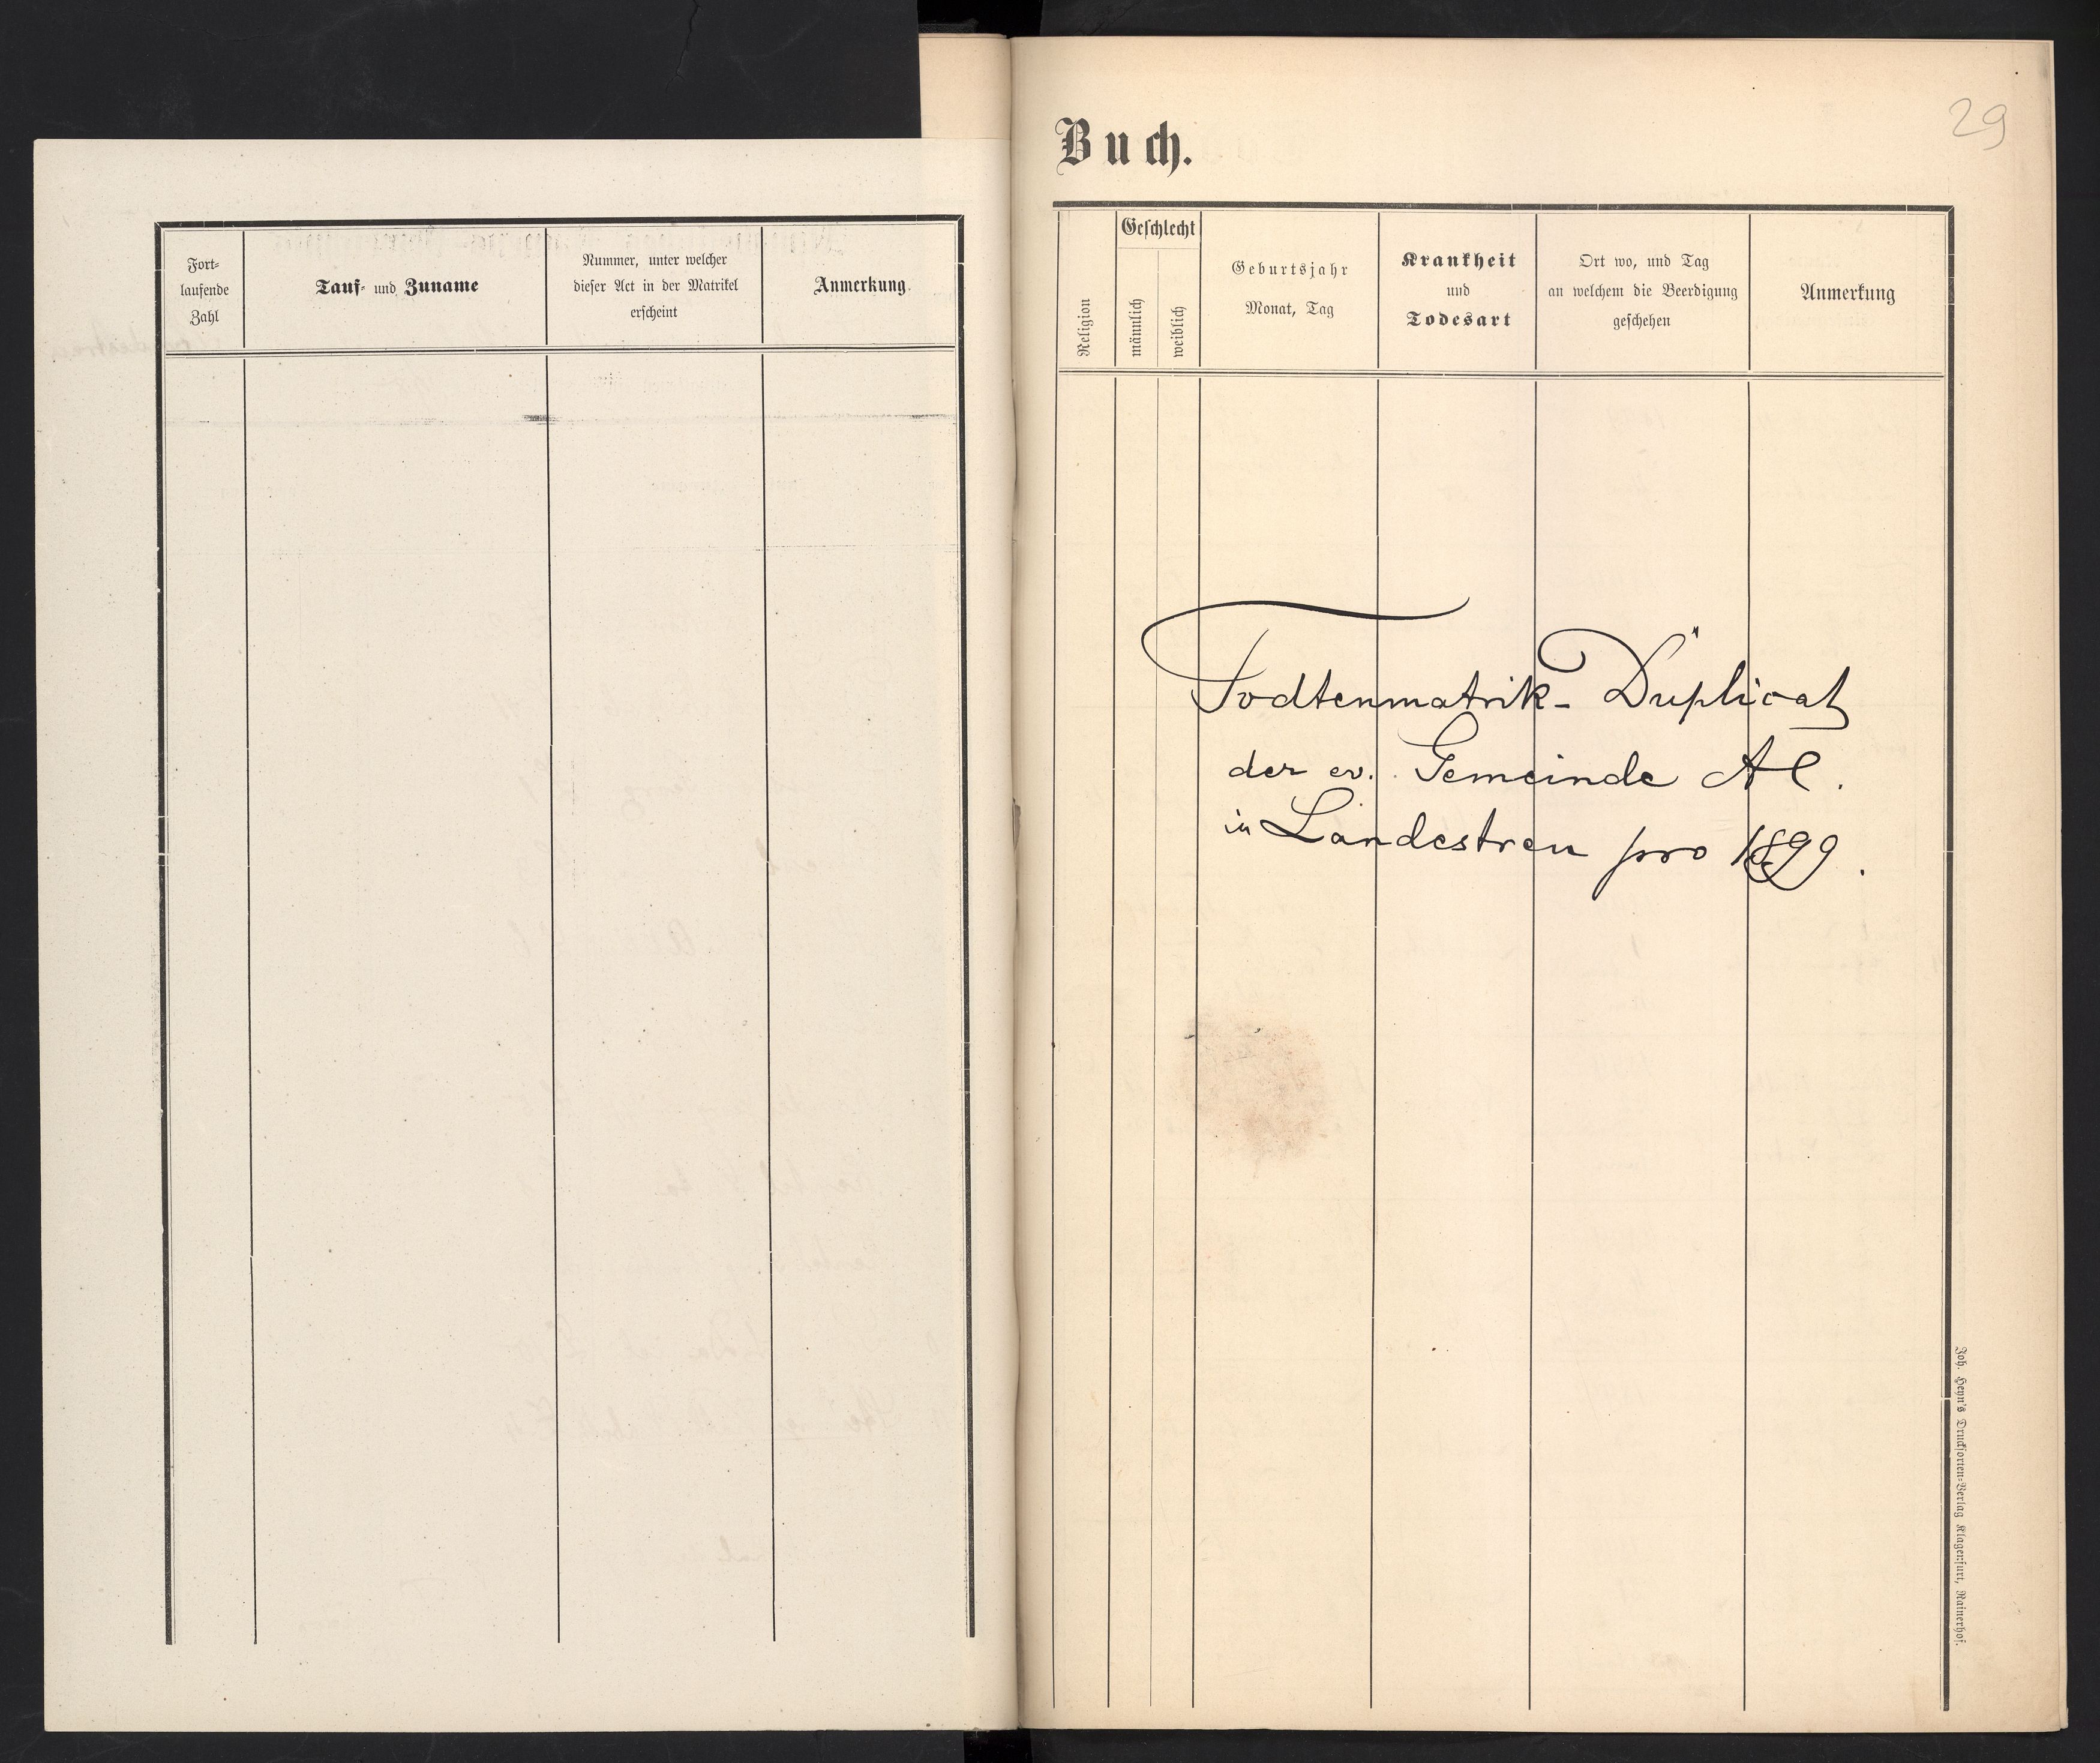 Fort-
laufende
Zahl
Tauf- und Zuname
Nummer, unter welcher
dieser Act in der Matrikel
erscheint
Anmerkung.
29
Buch.
Religion
Geschlecht
männlich
weiblich
Geburtsjahr
Monat, Tag
Krankheit
und
Todesart
Ort wo, und Tag
an welchem die Beerdigung
geschehen
Anmerkung
Todtenmatrik- Duplicat
der ev. Gemeinde AC.
in Landestreu pro 1899.
Joh. Heyn's Drucksorten-Verlag Klagenfurt, Rainerhof.